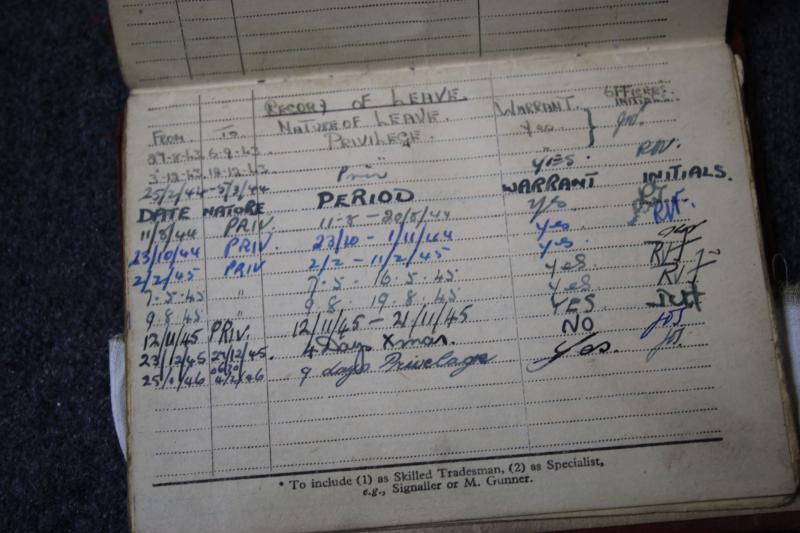 RECORD OF LEAVE.
FROM TO NATURE OF LEAVE. WARRANT OFFICERS INITIAL.
27-8-43 6-9-43 PRIVILEGE. Yes
3-12-43 12-12-43 " "
25/2/44 - 5/3/44 Priv YES.
DATE NATURE PERIOD WARRANT INITIALS.
11/8/44 PRIV. 11-8 - 20/8/44 Yes
23/10/44 PRIV. 23/10 - 1/11/44 yes.
2/2/45 PRIV 2/2 - 11/2/45 yes.
7.5.45 " 7.5 - 16.5.45 yes
9.8.45 " 9.8. 19.8.45 yes
12/11/45 PRIV. 12/11/45 - 21/11/45 YES
23/12/45 27/12/45. 4 Days Xmas. NO
25/1/46 4/2/46 9 days Privelage Yes.
* To include (1) as Skilled Tradesman, (2) as Specialist,
e.g., Signaller or M. Gunner.